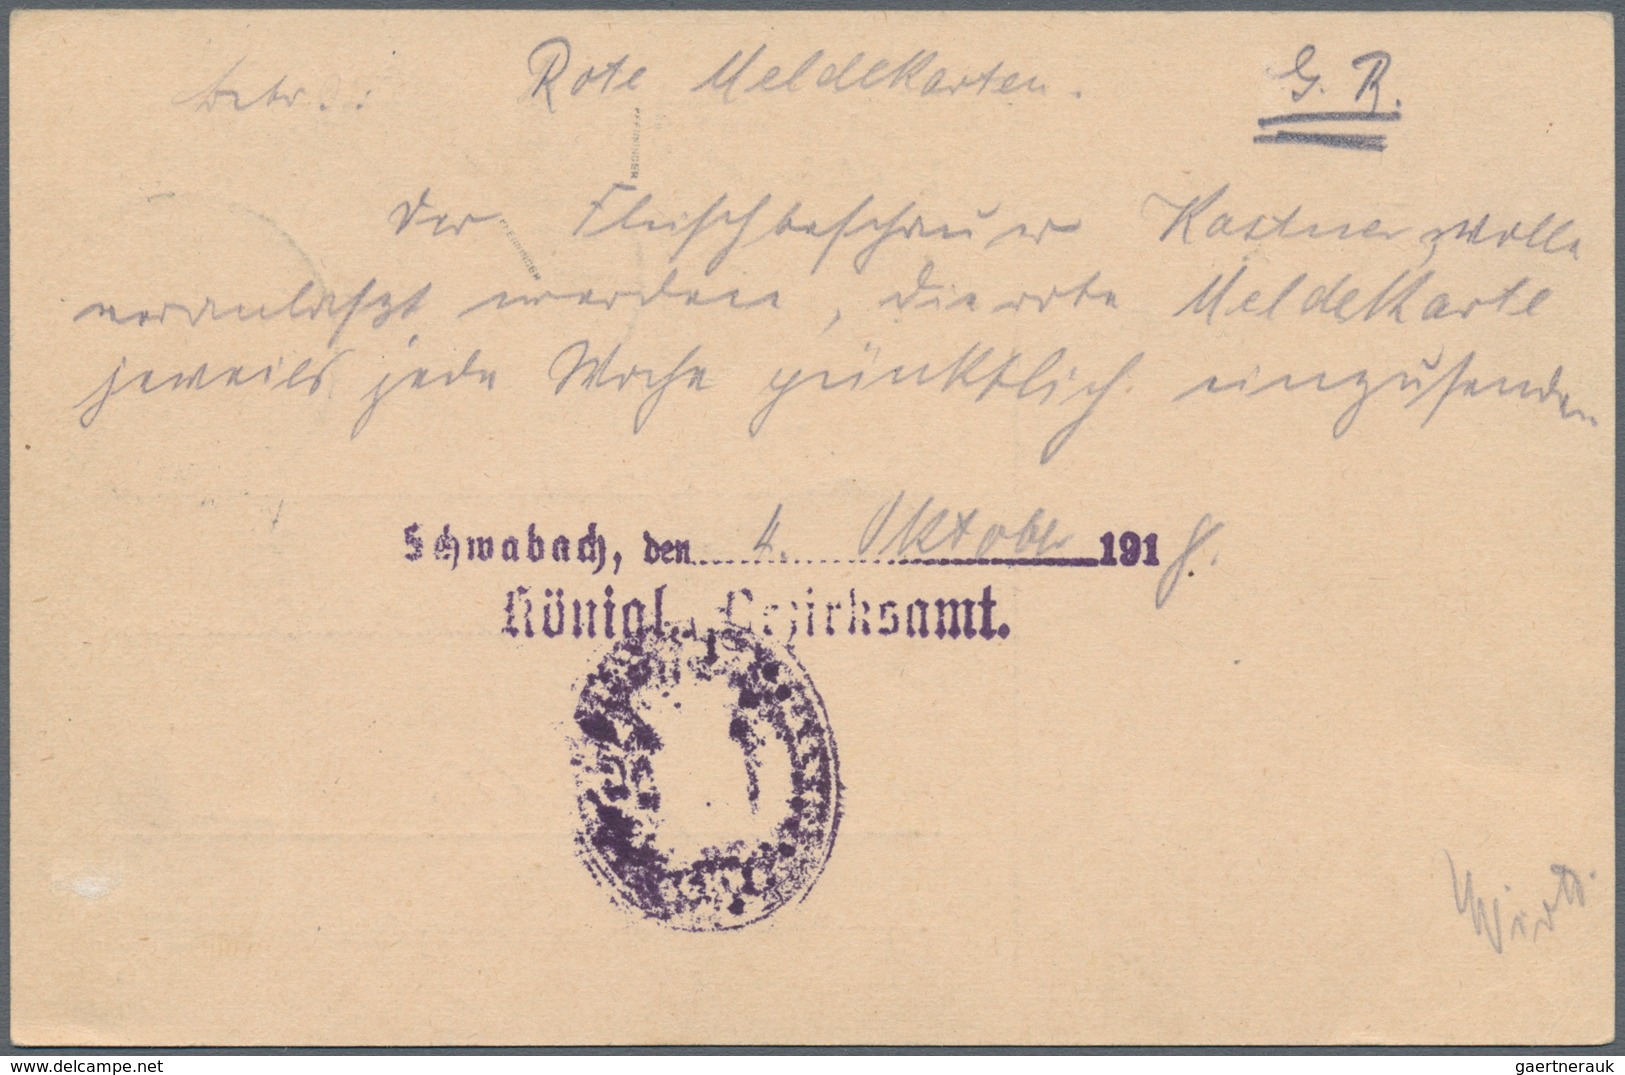 betr.: Rote Meldekarten. G. R.
PFENNINGER
Der Fleischbeschauer Kastner wolle
PFENNINGER
veranlaßt werden, die rote Meldekarte
jeweils jede Woche pünktlich einzusenden
Schwabach, den 4. Oktober 1918.
Königl. Bezirksamt.
gaertnerauk
delcampe.net